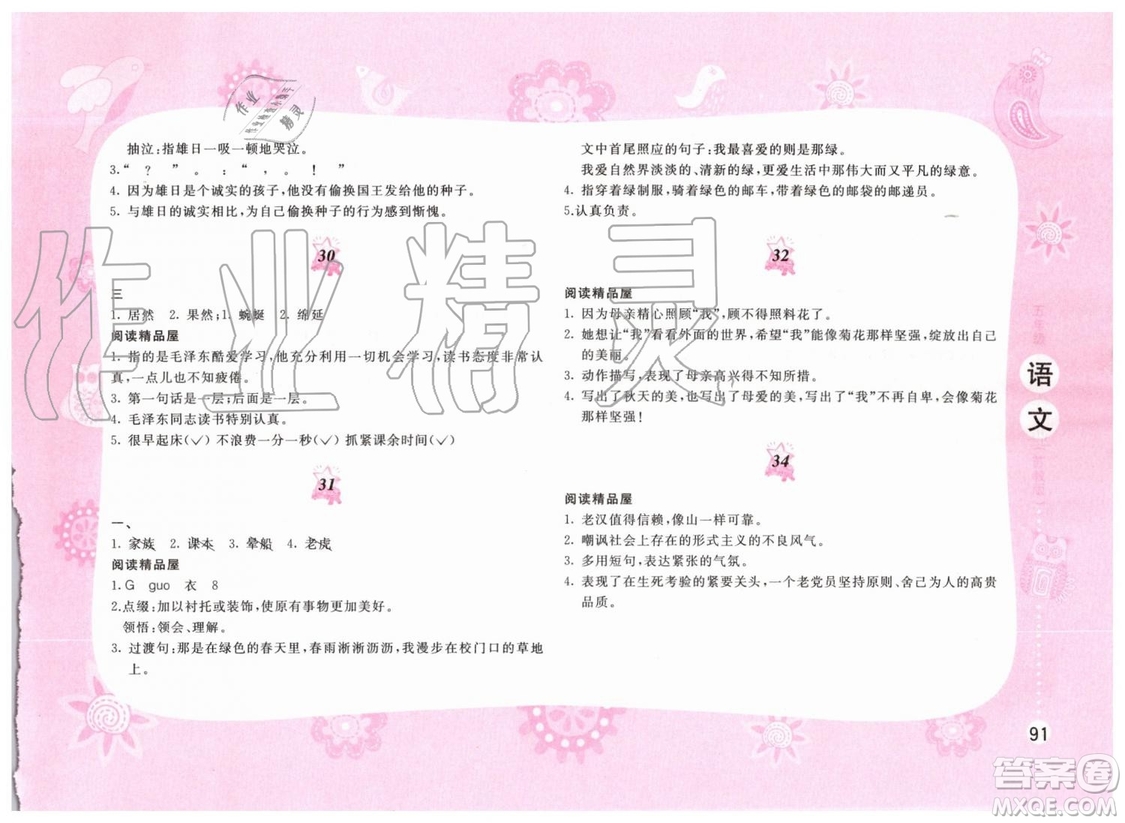 抽泣:指雄日一吸一顿地哭泣。
3.“ ? ” 。:“ , 。! ”
4. 因为雄日是个诚实的孩子,他没有偷换国王发给他的种子。
5. 与雄日的诚实相比,为自己偷换种子的行为感到惭愧。
30
三
1. 居然 2. 果然;1. 蜿蜒 2. 绵延
阅读精品屋
1. 指的是毛泽东酷爱学习,他充分利用一切机会学习,读书态度非常认
真,一点儿也不知疲倦。
3. 第一句话是一层;后面是一层。
4. 毛泽东同志读书特别认真。
5. 很早起床(✓) 不浪费一分一秒(✓) 抓紧课余时间(✓)
31
一、
1. 家族 2. 课本 3. 晕船 4. 老虎
阅读精品屋
1.G guo 衣 8
2.点缀:加以衬托或装饰,使原有事物更加美好。
领悟:领会、理解。
3. 过渡句:那是在绿色的春天里,春雨淅淅沥沥,我漫步在校门口的草地
上。
文中首尾照应的句子:我最喜爱的则是那绿。
我自然喜爱淡淡的、清新的绿,更爱生活中那伟大而又平凡的绿意。
4. 指穿着绿制服,骑着绿色的邮车,带着绿色的邮袋的邮递员。
5.认真负责。
32
阅读精品屋
1. 因为母亲精心照顾“我”,顾不得照料花了。
2. 她想让“我”看看外面的世界,希望“我”能像菊花那样坚强,绽放自己
的美丽。
3. 动作描写,表现了母亲高兴得不知所措。
4. 写出了秋天的美,也写出了母爱的美,写出了“我”不再自卑,会像菊花
那样坚强!
34
阅读精品屋
1. 老汉值得信赖,像山一样可靠。
2. 嘲讽社会上存在的形式主义的不良风气。
3. 多用短句,表达紧张的气氛。
4. 表现了在生死考验的紧要关头,一个老党员坚持原则、舍己为人的高贵
品质。
五年级
语
文
91
作业精灵
答案卷
MXQE.COM